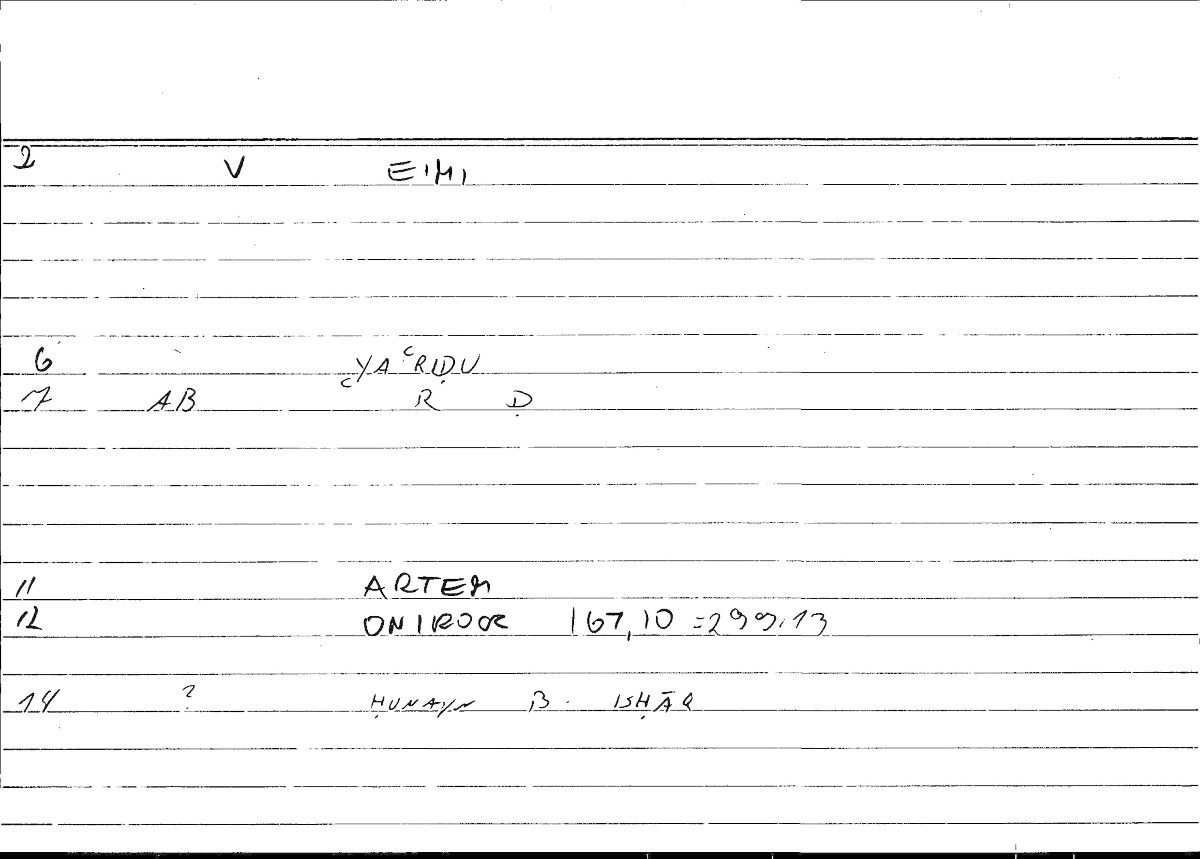 2 V EIMI
6 YAʿRIḌU
7 AB R Ḍ
11 ARTEM
12 ONIROCR 167,10 =299,13
14 ? ḤUNAYN B. ISḤĀQ